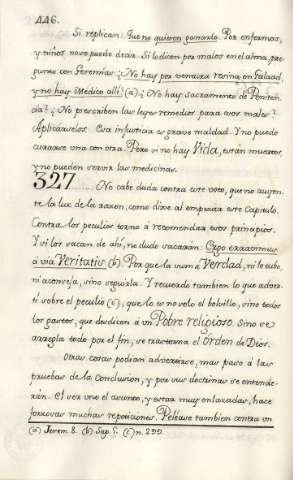 446.
Si replican: Que no quieren ponerlo. Por enfermos,
y niños no se puede decir. Si lo dicen por malos en el alma, pre-
gunto con Geremias: ¿No hay por ventura resina en Galaad,
y no hay Medico alli? (a) ¿No hay sacramento de Peniten-
cia? ¿No prescriben las leyes remedios para esos males?
Apliquenselos. Esa injusticia es grave maldad. Y no puede
curarse una con otra. Pero si no hay Vida, estàn muertos
y no pueden servir las medicinas.
327...... No cabe duda contra este voto, que no ausen-
te la luz de la razon, como dixe al empezar este Capitulo.
Contra los peculios torno à recomendar esos principios.
Y si los sacan de ahí, no dude sacaràn: Ergo erravimus
à via Veritatis. (b) Por que la suma Verdad, ni le sube,
ni aconseja, sino seguirla. Y recuerdo tambien lo que adver-
tì sobre el peculio (c), que lo es no solo el bolsillo, sino todos
los gastos, que desdicen à un Pobre religioso. Sino se
arregla todo por el fin, se trastorna el Orden de Dios.
Otras cosas podian advertirse, mas paso à las
pruebas de la conclusion, y por sus doctrinas se entende-
ràn. El ser uno el asunto, y estar muy enlazadas, hace
forzosas muchas repeticiones. Peléase tambien contra un
(a) Jerem. 8. (b) Sap. 5. (c) n. 299.